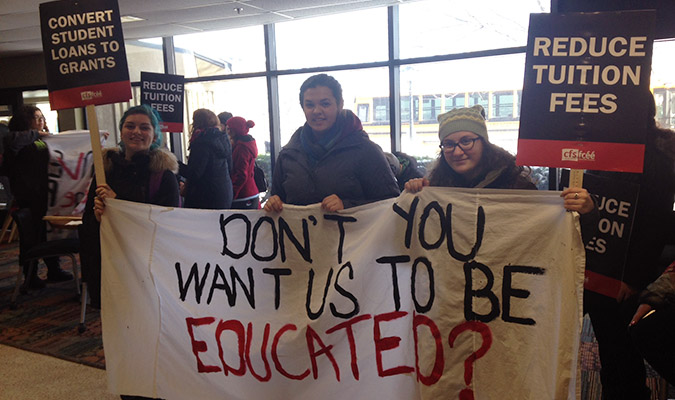 CONVERT
STUDENT
LOANS TO
GRANTS
cfs fcéé
REDUCE
TUITION
FEES
REDUCE
TUITION
FEES
cfs fcéé
REDUCE
FEES
DON'T YOU
WANT US TO BE
EDUCATED?